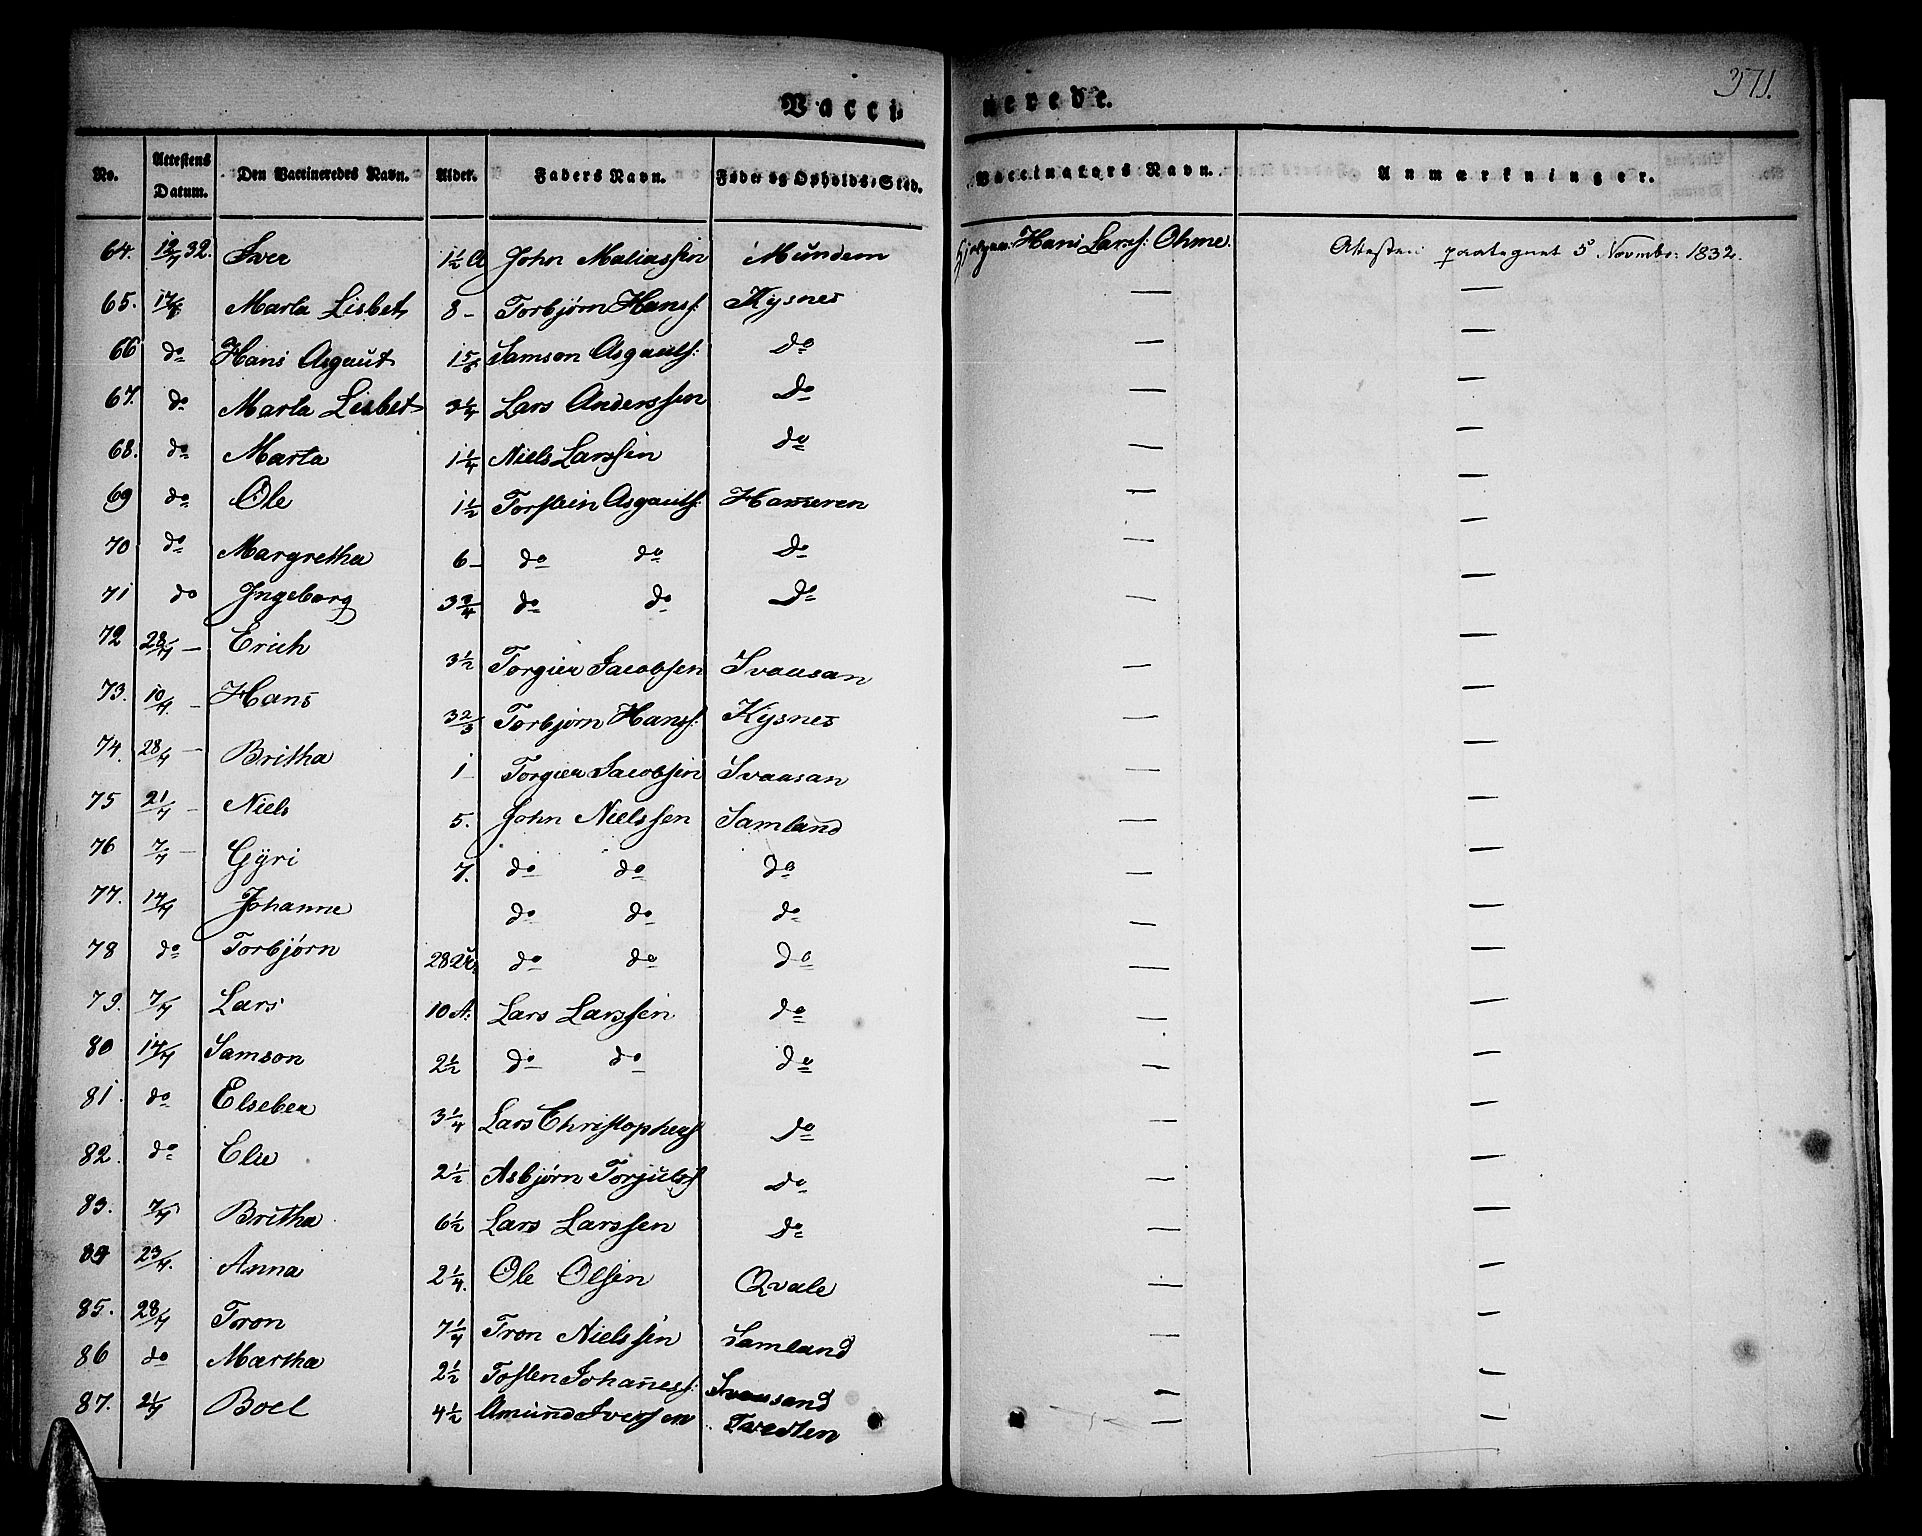 371.
Vaccinerede.
No. Attestens Datum. Den Vaccineredes Navn. Alder. Faders Navn. Føde- og Opholds-Sted. Vaccinators Navn. Anmærkninger.
64. 12/7 32. Iver 1½ A John Maliassen Mundem Hans Larss: Ohme. Attesten paategnet 5 Novembr: 1832.
65. 14/7 Marta Lisbet 8 – Torbjørn Hanss: Kysnes — —
66 do Hans Asgaut 1 5/6 Samson Asgautss: do — —
67. do Marta Lisbet 3¼ Lars Anderssen Do — —
68. do Marta 1¼ Niels Larssen do — —
69 do Ole 1½ Torstein Asgautss: Hameren — —
70 do Margretha 6 – do do Do — —
71 do Ingeborg 3¾ do do Do — —
72 28/7 – Erich 3½ Torgier Jacobsen Svaasan — —
73. 10/7. – Hans 3⅔ Torbjørn Hanss: Kysnes — —
74. 28/7 – Britha 1 Torgier Jacobsen Svaasan — —
75 21/7 – Niels 5. John Nielssen Samland — —
76 7/7 – Gÿri 7. do do do — —
77. 14/7 Johanne do do do — —
78 do Torbjørn 28 U. do do do — —
79. 7/7 Lars 10 A: Lars Larssen do — —
80 14/7 Samson 2½ do do do — —
81. do Elseber 3¼ Lars Christophers Do — —
82. do Elie 2½ Asbjørn Torjulss Do — —
83. 7/7 Britha 6½ Lars Larssen Do — —
84 23/7. Anna 2¼. Ole Olsen Qvale — —
85. 28/7 Tron 7¼ Tron Nielssen Samland — —
86 do Martha 2½ Tosten Johaness: Svaasand — —
87. 21/7 Boel 4½ Amund Iverssen Tvedten — —